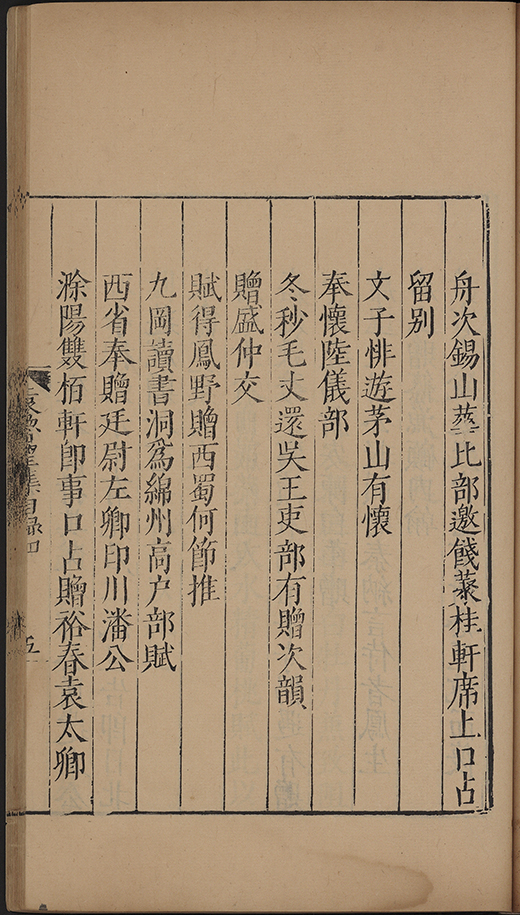 舟次錫山葵比部邀餞蒃桂軒席上口占
留别
文子悱遊茅山有懷
奉懷陸儀部
冬秒毛丈還吳王吏部有贈次韻
贈盛仲交
賦得鳳野贈西蜀何節推
九岡讀書洞爲綿州高户部賦
西省奉贈廷尉左卿印川潘公
滁陽雙栢軒卽事口占贈裕春袁太卿
集目録四
五